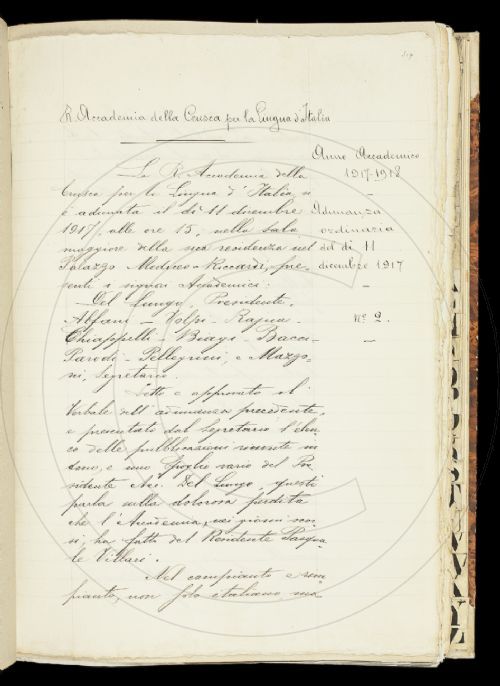 R. Accademia della Crusca per la Lingua d'Italia
Anno Accademico
1917-1918
Adunanza
ordinaria
del dì 11
dicembre 1917
N.° 2.
La R. Accademia della
Crusca per la Lingua d'Italia si
è adunata il dì 11 dicembre
1917, alle ore 15, nella sala
maggiore della sua residenza nel
Palazzo Mediceo-Riccardi, pre-
senti i signori Accademici:
Del Lungo, Presidente,
Alfani - Volpi - Rajna -
Chiappelli - Biagi - Bacci -
Parodi - Pellegrini, e Mazzo-
ni, Segretario.
Letto e approvato il
Verbale dell'adunanza precedente,
e presentato dal Segretario l'elen-
co delle pubblicazioni ricevute in
dono, e uno spoglio vario del Pre-
sidente Acc. Del Lungo, questi
parla sulla dolorosa perdita
che l'Accademia, nei giorni scor-
si, ha fatto del Residente Pasqua-
le Villari.
Nel compianto e rim-
pianto, non solo italiano, ma